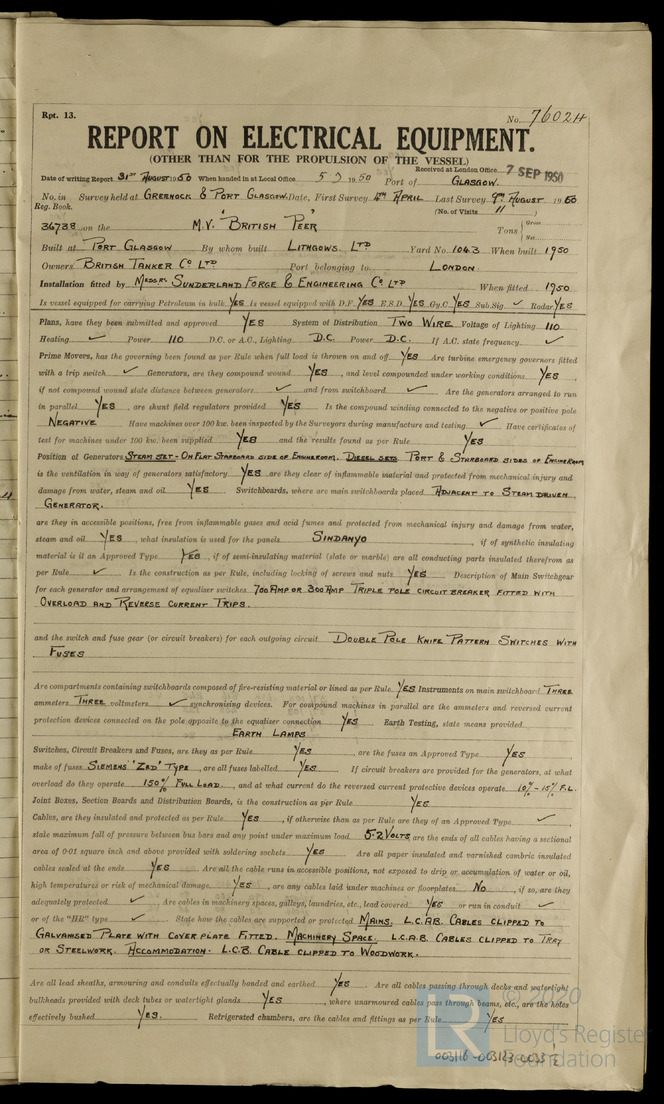 Rpt. 13.
No. 76024
REPORT ON ELECTRICAL EQUIPMENT.
(OTHER THAN FOR THE PROPULSION OF THE VESSEL)
Received at London Office 7 SEP 1950
Date of writing Report 31st August 1950 When handed in at Local Office 5 9 1950 Port of GLASGOW.
No. in Survey held at GREENOCK & PORT GLASGOW. Date, First Survey 4th APRIL Last Survey 9th AUGUST 1950
Reg. Book. (No. of Visits 11 )
36738 on the M.V. "BRITISH PEER" Tons { Gross Net
Built at PORT GLASGOW By whom built LITHGOWS LTD Yard No. 1043 When built 1950
Owners BRITISH TANKER CO LTD Port belonging to LONDON.
Installation fitted by MESSRS. SUNDERLAND FORGE & ENGINEERING CO LTD When fitted 1950
Is vessel equipped for carrying Petroleum in bulk YES Is vessel equipped with D.F. YES E.S.D. YES Gy.C. YES Sub.Sig. ✓ Radar YES
Plans, have they been submitted and approved YES System of Distribution TWO WIRE Voltage of Lighting 110
Heating ✓ Power 110 D.C. or A.C., Lighting D.C. Power D.C. If A.C. state frequency ✓
Prime Movers, has the governing been found as per Rule when full load is thrown on and off YES Are turbine emergency governors fitted
with a trip switch ✓ Generators, are they compound wound YES, and level compounded under working conditions YES,
if not compound wound state distance between generators ✓ and from switchboard ✓ Are the generators arranged to run
in parallel YES, are shunt field regulators provided YES Is the compound winding connected to the negative or positive pole
NEGATIVE Have machines over 100 kw. been inspected by the Surveyors during manufacture and testing ✓ Have certificates of
test for machines under 100 kw. been supplied YES and the results found as per Rule YES
Position of Generators STEAM SET - ON FLAT STARBOARD SIDE OF ENGINEROOM. DIESEL SETS PORT & STARBOARD SIDES OF ENGINEROOM
is the ventilation in way of generators satisfactory YES are they clear of inflammable material and protected from mechanical injury and
damage from water, steam and oil YES Switchboards, where are main switchboards placed ADJACENT TO STEAM DRIVEN
GENERATOR.
are they in accessible positions, free from inflammable gases and acid fumes and protected from mechanical injury and damage from water,
steam and oil YES, what insulation is used for the panels SINDANYO, if of synthetic insulating
material is it an Approved Type YES, if of semi-insulating material (slate or marble) are all conducting parts insulated therefrom as
per Rule ✓ Is the construction as per Rule, including locking of screws and nuts YES Description of Main Switchgear
for each generator and arrangement of equaliser switches 700 AMP OR 300 AMP TRIPLE POLE CIRCUIT BREAKER FITTED WITH
OVERLOAD AND REVERSE CURRENT TRIPS.
and the switch and fuse gear (or circuit breakers) for each outgoing circuit DOUBLE POLE KNIFE PATTERN SWITCHES WITH
FUSES
Are compartments containing switchboards composed of fire-resisting material or lined as per Rule YES Instruments on main switchboard THREE
ammeters THREE voltmeters ✓ synchronising devices. For compound machines in parallel are the ammeters and reversed current
protection devices connected on the pole opposite to the equaliser connection YES Earth Testing, state means provided
EARTH LAMPS
Switches, Circuit Breakers and Fuses, are they as per Rule YES, are the fuses an Approved Type YES,
make of fuses SIEMENS 'ZED' TYPE, are all fuses labelled YES If circuit breakers are provided for the generators, at what
overload do they operate 150% FULL LOAD, and at what current do the reversed current protective devices operate 10% - 15% F.L.
Joint Boxes, Section Boards and Distribution Boards, is the construction as per Rule YES
Cables, are they insulated and protected as per Rule YES, if otherwise than as per Rule are they of an Approved Type ✓,
state maximum fall of pressure between bus bars and any point under maximum load 5.2 VOLTS, are the ends of all cables having a sectional
area of 0·01 square inch and above provided with soldering sockets YES Are all paper insulated and varnished cambric insulated
cables sealed at the ends YES Are all the cable runs in accessible positions, not exposed to drip or accumulation of water or oil,
high temperatures or risk of mechanical damage YES, are any cables laid under machines or floorplates NO, if so, are they
adequately protected ✓ Are cables in machinery spaces, galleys, laundries, etc., lead covered YES or run in conduit ✓
or of the "HR" type ✓ State how the cables are supported or protected MAINS. L.C.A.B. CABLES CLIPPED TO
GALVANISED PLATE WITH COVER PLATE FITTED. MACHINERY SPACE. L.C.A.B. CABLES CLIPPED TO TRAY
OR STEELWORK. ACCOMMODATION. L.C.B. CABLE CLIPPED TO WOODWORK.
Are all lead sheaths, armouring and conduits effectually bonded and earthed YES Are all cables passing through decks and watertight
bulkheads provided with deck tubes or watertight glands YES, where unarmoured cables pass through beams, etc., are the holes
effectively bushed YES. Refrigerated chambers, are the cables and fittings as per Rule YES
© 2020
LR
Lloyd's Register
Foundation